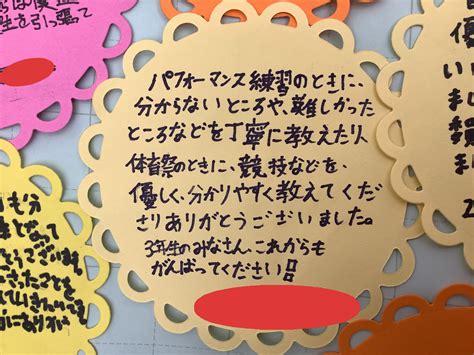 パフォーマンス練習のときに、
分からないところや、難しかった
ところなどを丁寧に教えたり、
体育祭のときに、競技などを、
優しく、分かりやすく教えてくだ
さりありがとうございました。
3年生のみなさん、これからも
がんばってください!!
生を引っ張って